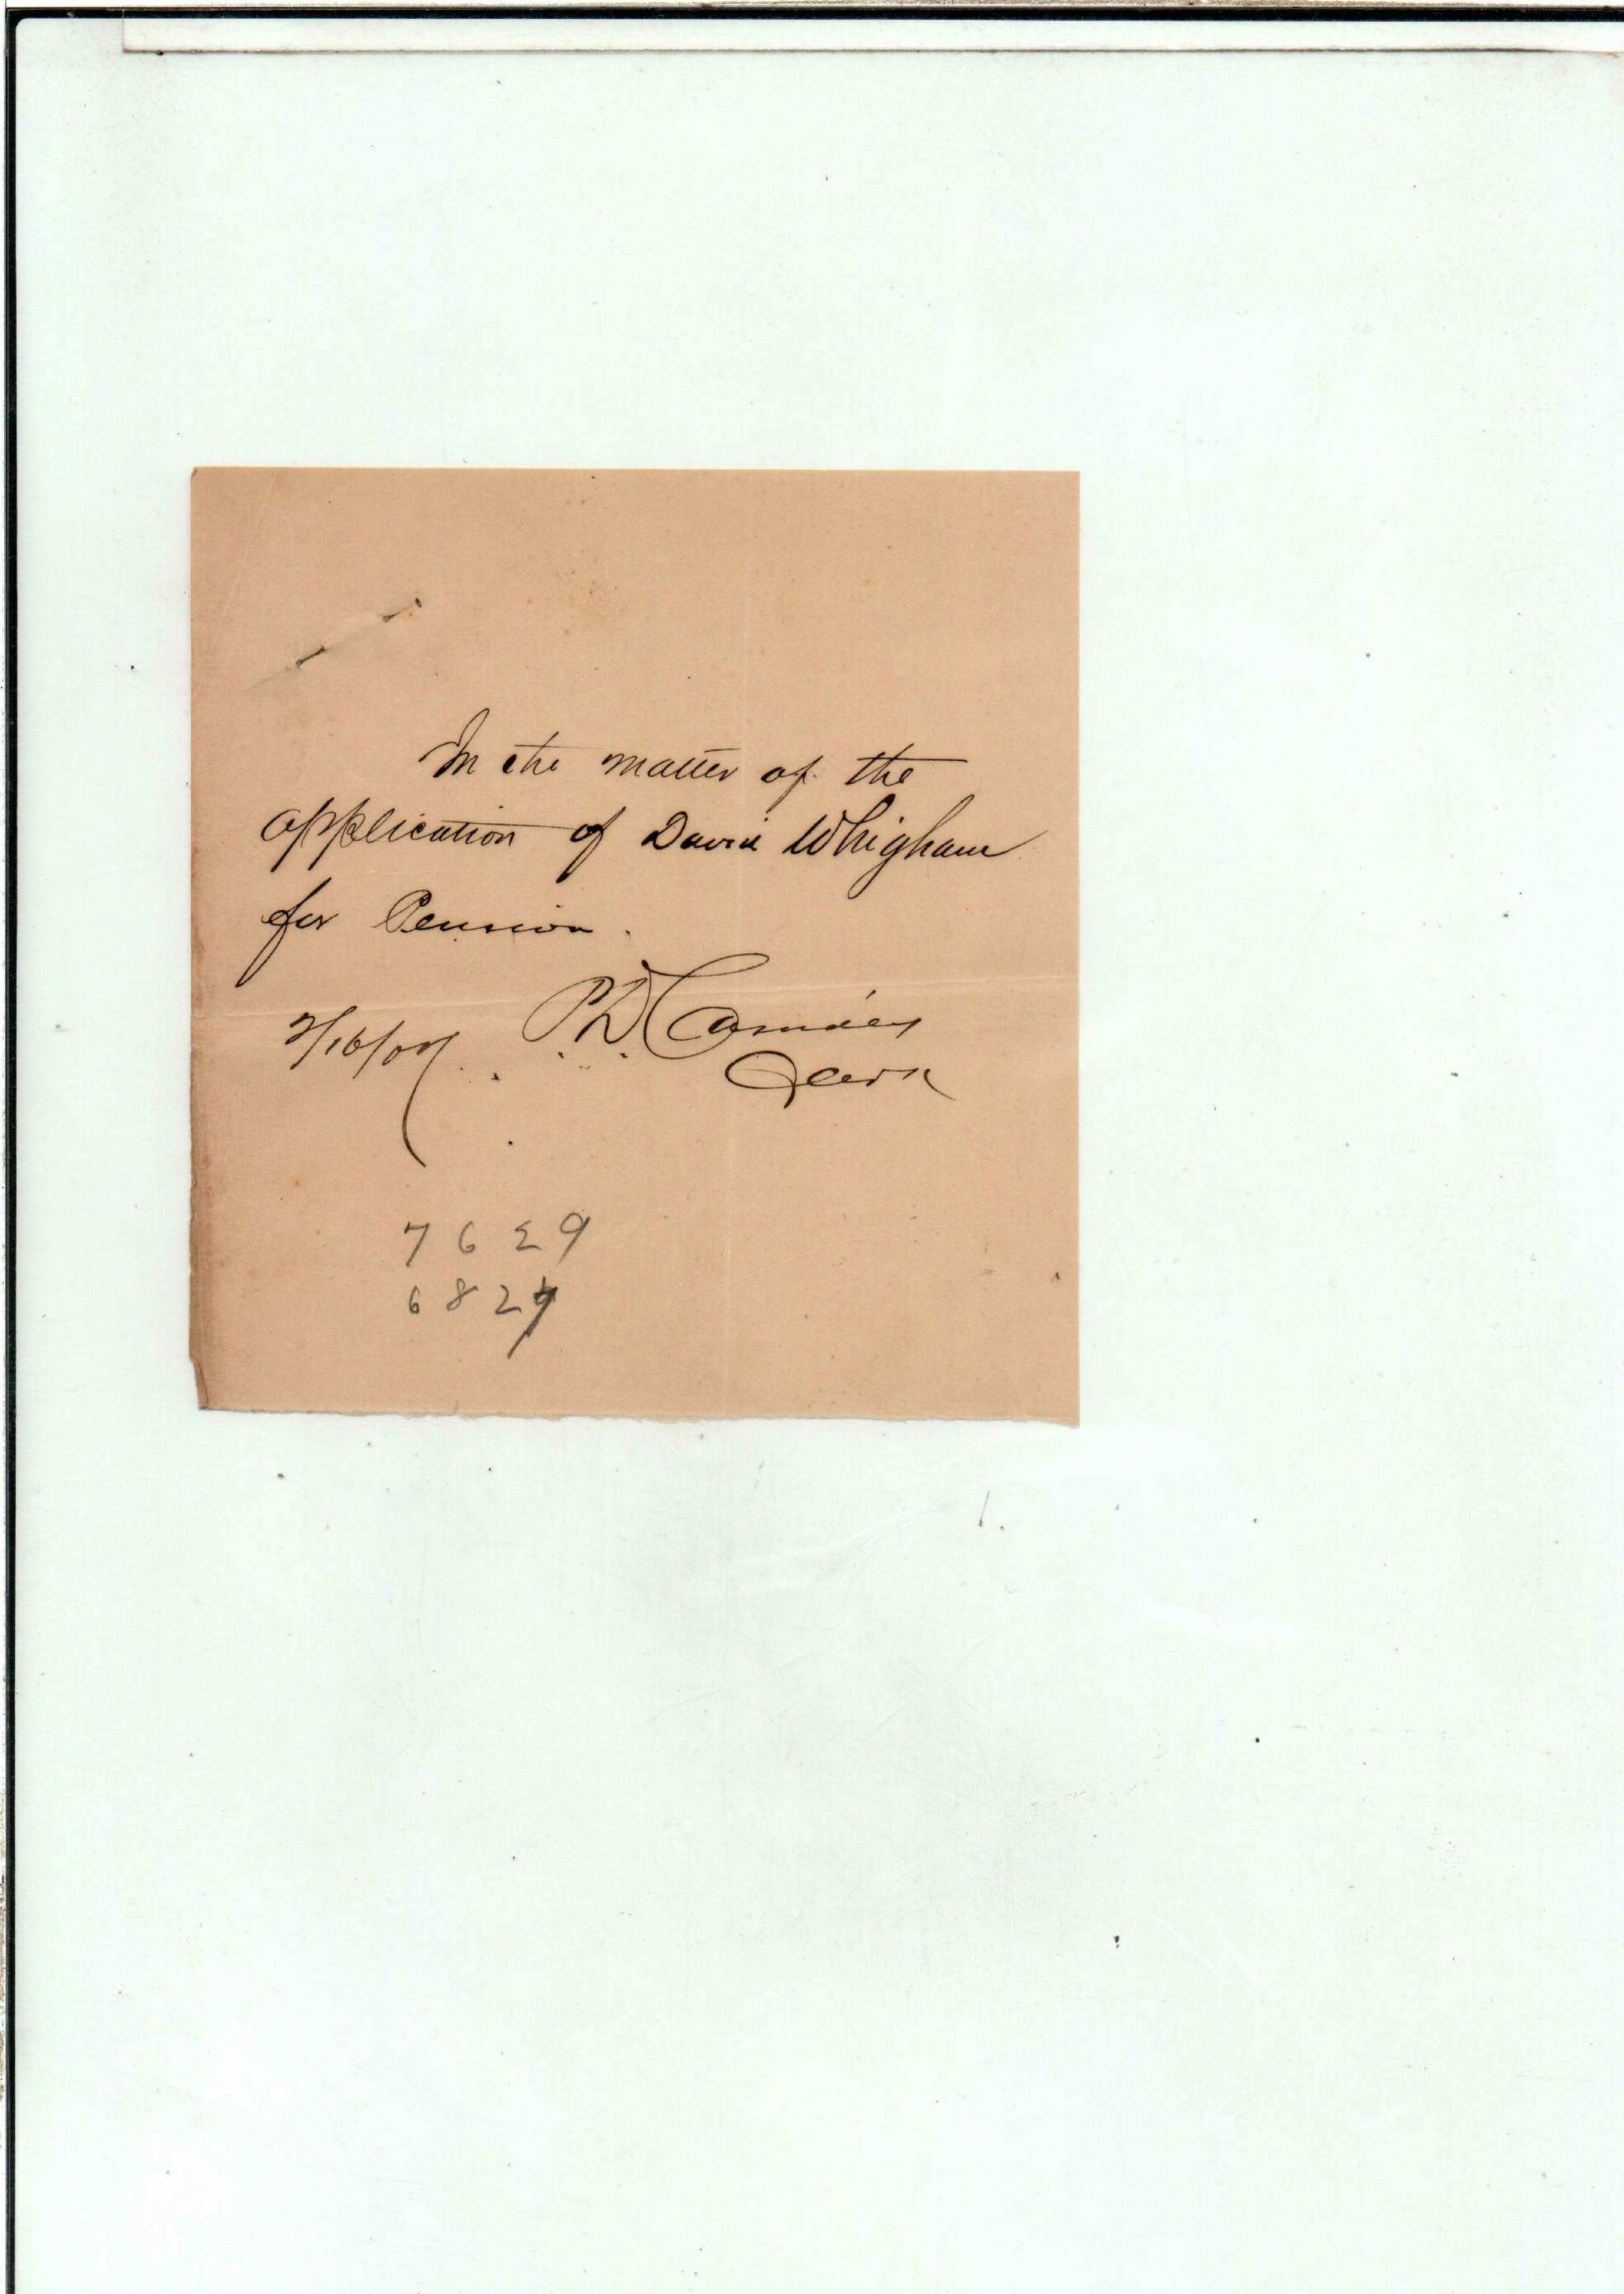 In the matter of the
application of David Whigham
for Pension.
P D Camden
Clerk
7629
682